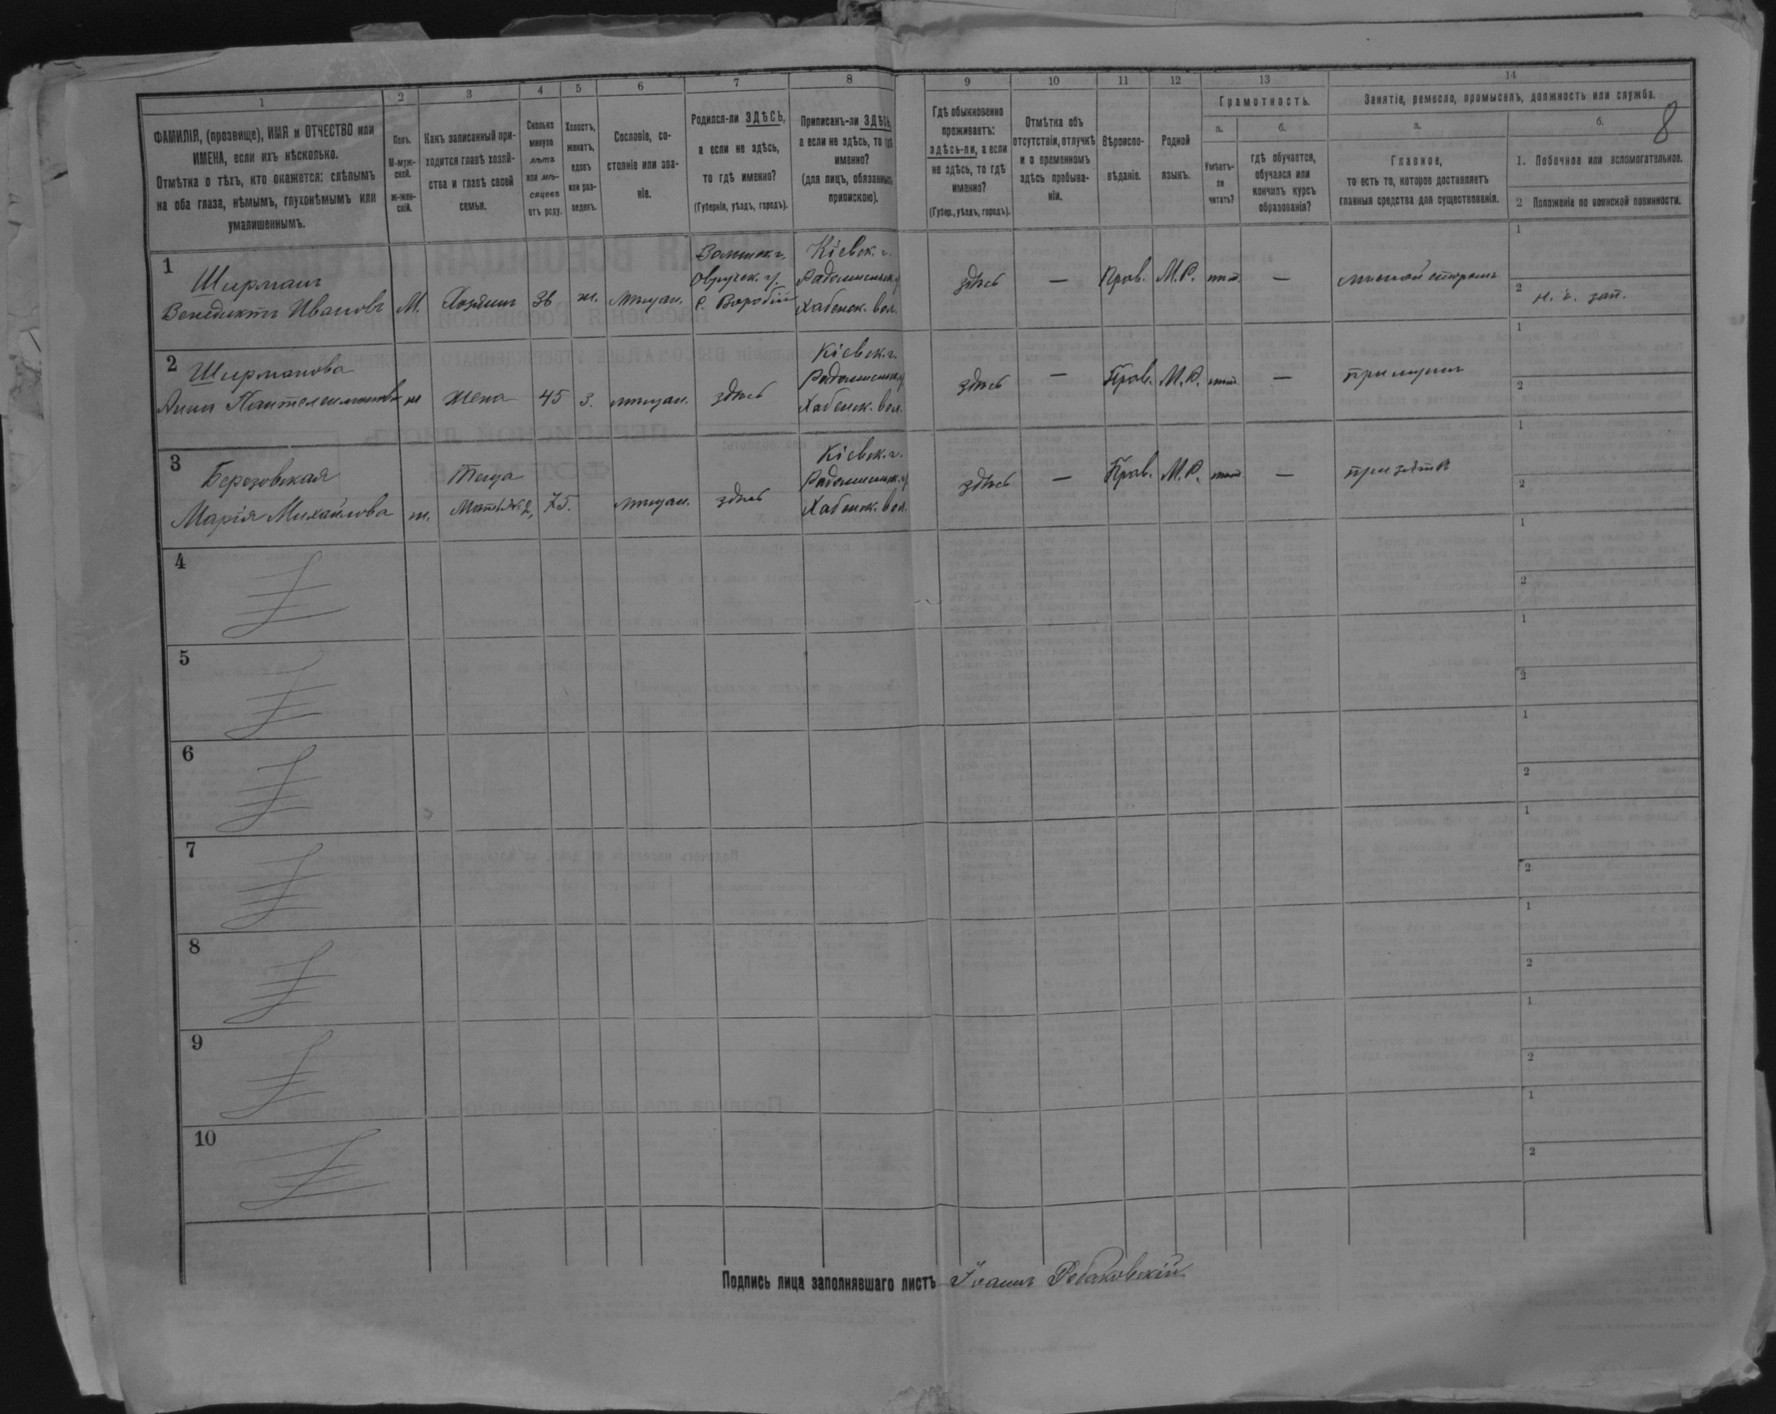 1 2 3 4 5 6 7 8 9 10 11 12 13 14
8
ФАМИЛІЯ, (прозвище), ИМЯ и ОТЧЕСТВО или
ИМЕНА, если ихъ нѣсколько.
Отмѣтка о тѣхъ, кто окажется: слѣпымъ
на оба глаза, нѣмымъ, глухонѣмымъ или
умалишеннымъ.
Полъ.
М-муж-
ской.
Ж-жен-
скій.
Какъ записанный при-
ходится главѣ хозяй-
ства и главѣ своей
семьи.
Сколько
минуло
лѣтъ
или мѣ-
сяцевъ
отъ роду.
Холостъ,
женатъ,
вдовъ
или раз-
веденъ.
Сословіе, со-
стояніе или зва-
ніе.
Родился-ли ЗДѢСЬ,
а если не здѣсь,
то гдѣ именно?
(Губернія, уѣздъ, городъ).
Приписанъ-ли ЗДѢСЬ,
а если не здѣсь, то гдѣ
именно?
(для лицъ, обязанныхъ
припискою).
Гдѣ обыкновенно
проживаетъ:
здѣсь-ли, а если
не здѣсь, то гдѣ
именно?
(Губер., уѣздъ, городъ).
Отмѣтка объ
отсутствіи, отлучкѣ
и о временномъ
здѣсь пребыва-
ніи.
Вѣроиспо-
вѣданіе.
Родной
языкъ.
Грамотность.
а.
Умѣетъ-
ли
читать?
б.
гдѣ обучается,
обучался или
кончилъ курсъ
образованія?
Занятіе, ремесло, промыселъ, должность или служба.
а.
Главное,
то есть то, которое доставляетъ
главныя средства для существованія.
б.
1. Побочное или вспомогательное.
2 Положеніе по воинской повинности.
1 Ширманъ
Венедиктъ Ивановъ М. Хозяинъ 36 ж. мѣщан.
Волынск. г.
Овручск. у.
с. Воробіи
Кіевск. г.
Радомысльск. у
Хабенск. вол.
здѣсь — Прав. М.Р. — 1
2 н. б. зап.
2 Ширманова
Анна Пантелеимонова ж жена 45 з. мѣщан. здѣсь
Кіевск. г.
Радомысльск. у
Хабенск. вол.
здѣсь — Прав. М.Р. — при мужѣ 1
2
3 Березовская
Марія Михайлова ж. Теща
Мать № 2, 75. мѣщан. здѣсь
Кіевск. г.
Радомысльск. у
Хабенск. вол.
здѣсь — Прав. М.Р. — при зятѣ 1
2
4 1
2
5 1
2
6 1
2
7 1
2
8 1
2
9 1
2
10 1
2
Подпись лица заполнявшаго листъ Іоаннъ